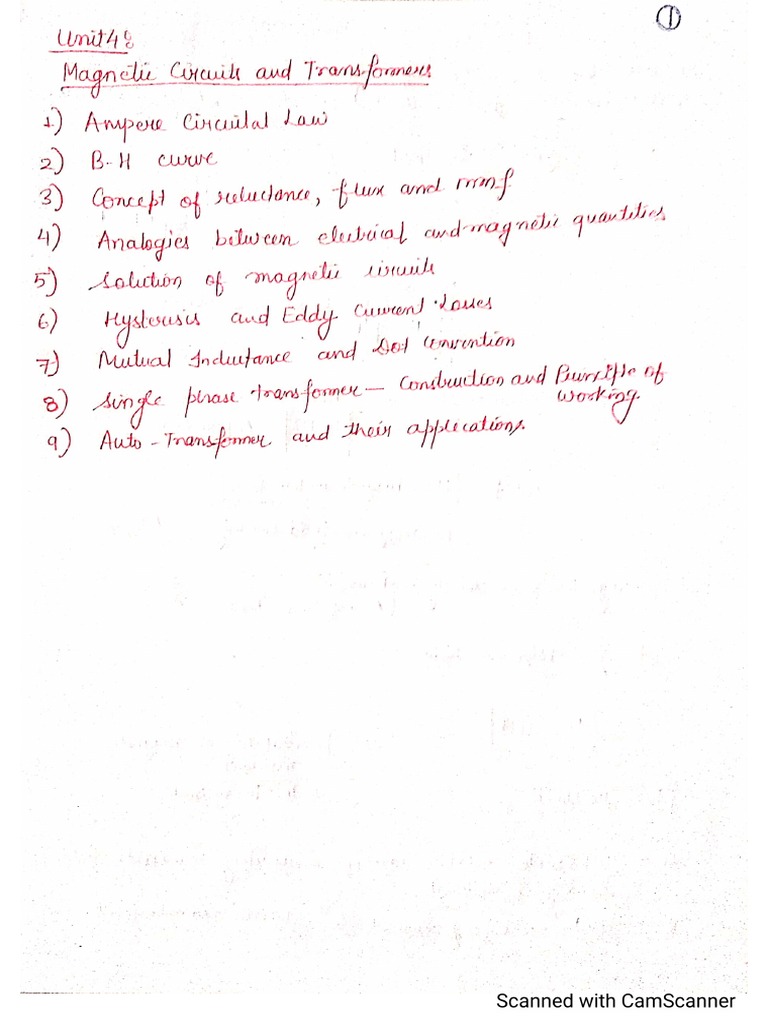 ①
Unit 4:
Magnetic Circuits and Transformers
1) Ampere Circuital Law
2) B-H curve
3) Concept of reluctance, flux and mmf
4) Analogies between electrical and magnetic quantities
5) Solution of magnetic circuits
6) Hysterisis and Eddy Current Losses
7) Mutual Inductance and Dot Convention
8) Single phase transformer — Construction and Principle of
working.
9) Auto-Transformer and their applications.
Scanned with CamScanner